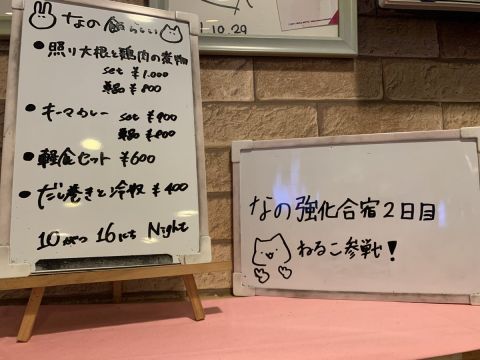 1.10.29
なの飯らららら
●照り大根と鶏肉の煮物
set ¥1.000
単品 ¥800
●キーマカレー set ¥900
単品 ¥800
●軽食セット ¥600
●だし巻きと冷奴 ¥400
10がつ 16にち Night
なの強化合宿2日目
ねるこ参戦!